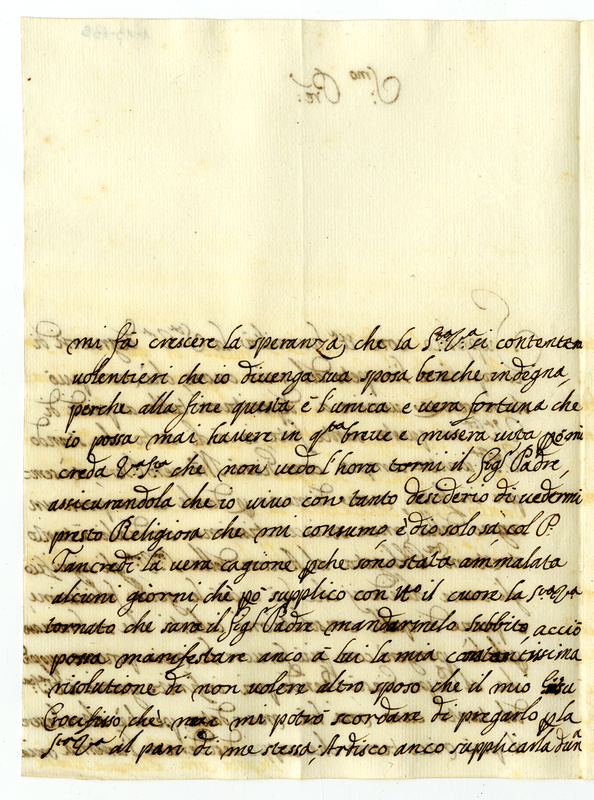 mi fà crescere la speranza, che la S.tra V.a ci contenterà
volentieri che io divenga sua sposa benche indegna,
perche alla fine questa è l'unica e vera fortuna che
io possa mai havere in q.sta breve e misera vita
creda V.a S.ria che non vedo l'hora torni il Sig.r Padre,
assicurandola che io vivo con tanto desiderio di vedermi
presto Religiosa che mi consumo, è dio solo sà col P.
Tancredi la vera cagione pche sono stata ammalata
alcuni giorni, che pò supplico con tt.o il cuore la S.ra V.a
tornato che sara il Sig.r Padre mandarmelo subbito, acciò
possa manifestare anco à lui la mia costantissima
risolutione di non volere altro sposo che il mio Giesu
Crocifisso, che mi potrò scordare di pregarlo p la
S.ra V.a al pari di me stessa, Ardisco anco supplicarla d'un